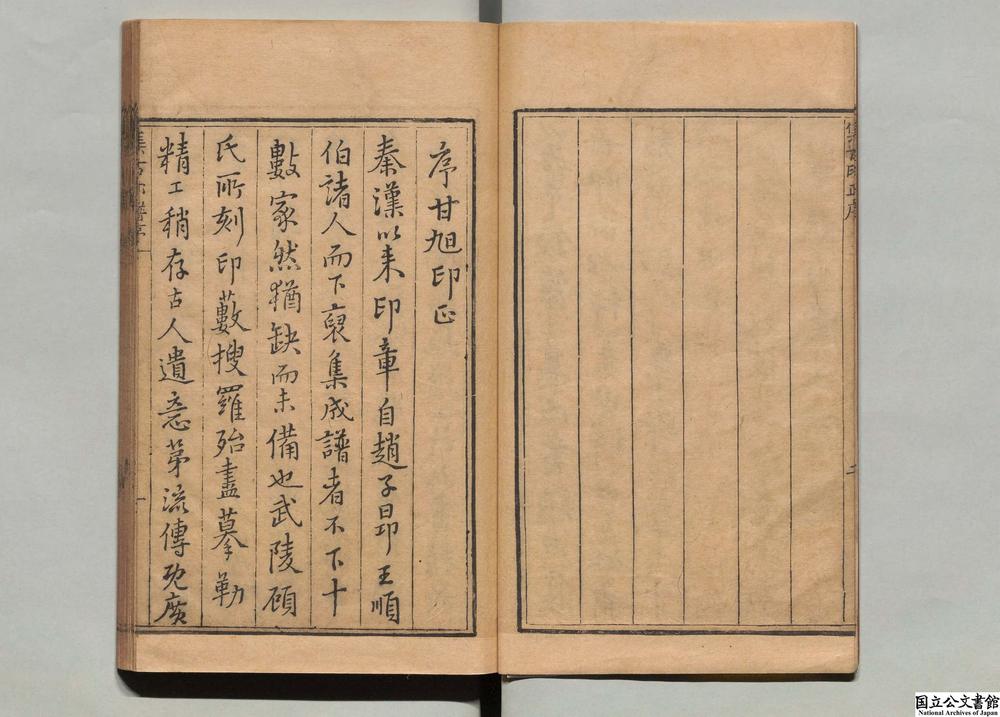 集古印正序
二
序甘旭印正
秦漢以来印章自趙子昻王順
伯諸人而下裒集成譜者不下十
數家然猶缺而未備也武陵顧
氏所刻印藪搜羅殆盡摹勒
精工稍存古人遺意苐流傳既廣
集古印譜序
一
国立公文書館
National Archives of Japan